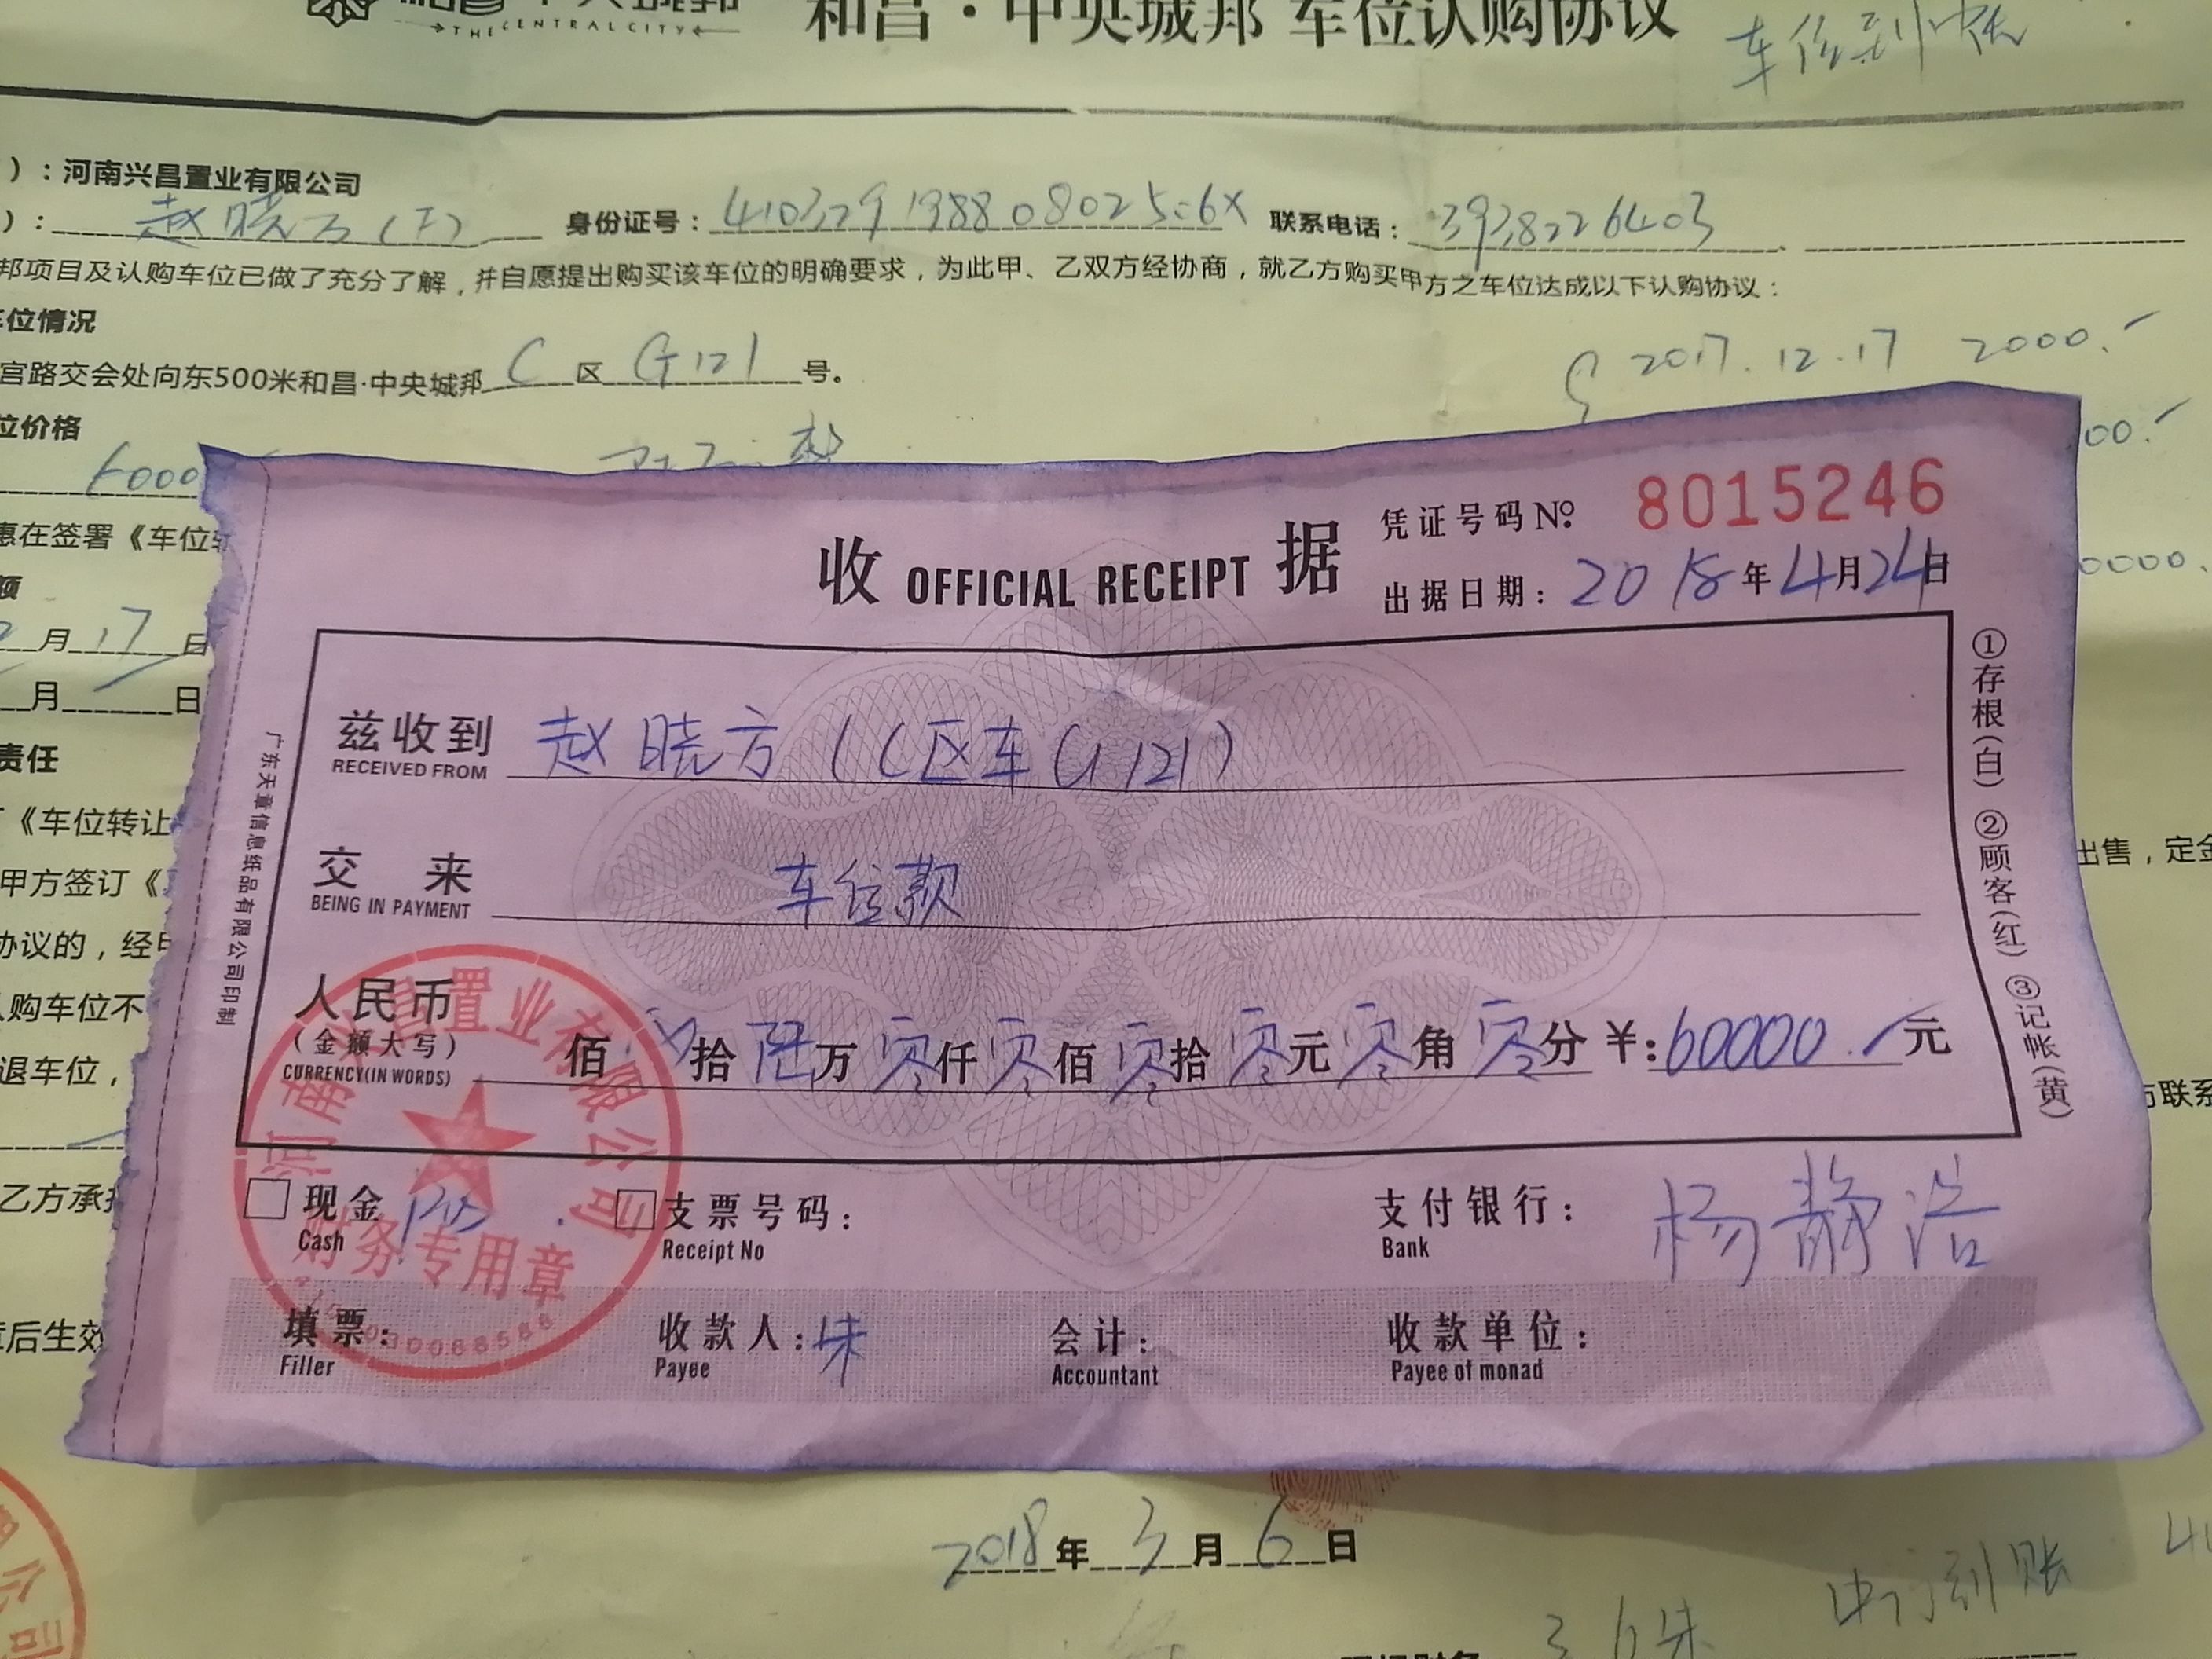 THE CENTRAL CITY
和昌·中央城邦 车位认购协议
车位到账
）：河南兴昌置业有限公司
）：赵晓方 身份证号： 联系电话：
邦项目及认购车位已做了充分了解，并自愿提出购买该车位的明确要求，为此甲、乙双方经协商，就乙方购买甲方之车位达成以下认购协议：
位情况
宫路交会处向东500米和昌·中央城邦 C 区 G121 号。
2017.12.17 2000.
位价格
6000
00.
惠在签署《车位转
0000.
额
月 17 日
月 日
责任
《车位转让
出售，定金
甲方签订《
协议的，经甲
认购车位不
退车位，
方联系
乙方承担
章后生效
收 OFFICIAL RECEIPT 据
凭证号码 No 8015246
出据日期：2018年4月24日
兹收到 赵晓方（C区车G121）
RECEIVED FROM
交 来 车位款
BEING IN PAYMENT
人民币
（金额大写）
CURRENCY(IN WORDS)
佰 拾 陆万 零仟 零佰 零拾 零元 零角 零分 ¥:60000. 元
①存根(白) ②顾客(红) ③记帐(黄)
广东天章信息纸品有限公司印制
河南兴昌置业有限公司
财务专用章
现金
Cash
支票号码：
Receipt No
支付银行：
Bank
杨静浩
填票：
Filler
收款人：朱
Payee
会计：
Accountant
收款单位：
Payee of monad
2018年3月6日
中行到账
3.6朱
公司